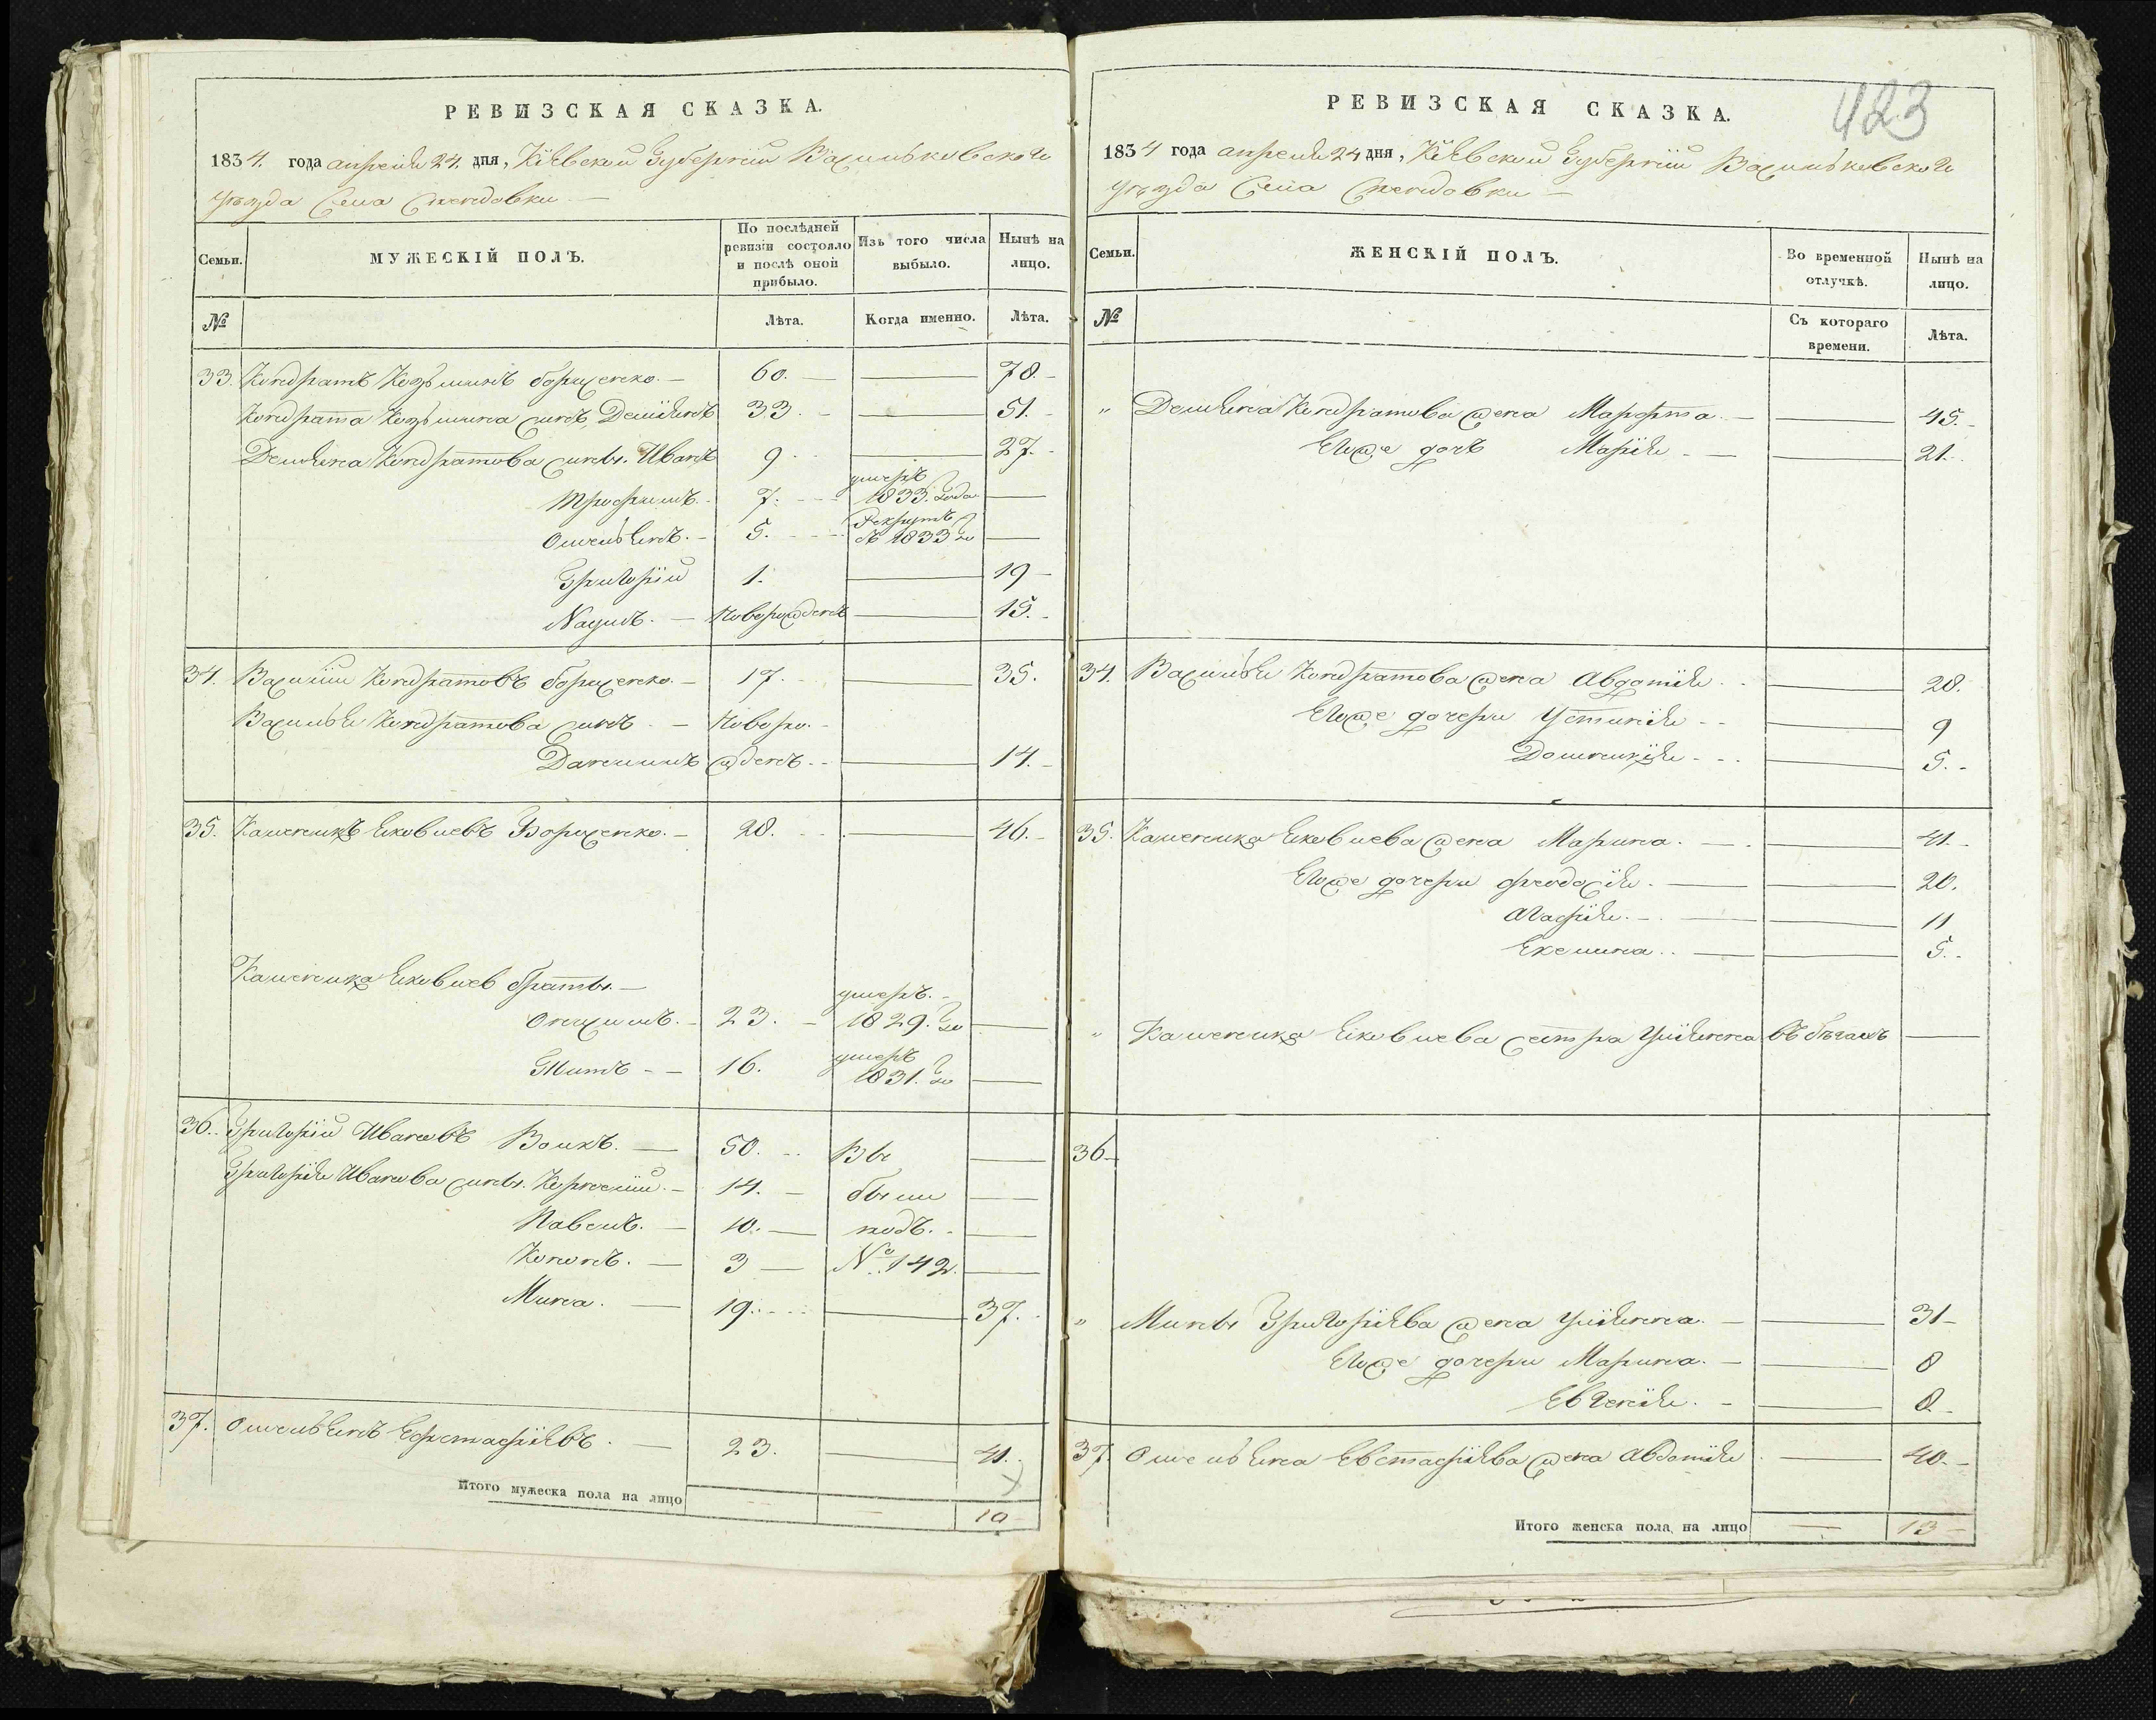 РЕВИЗСКАЯ СКАЗКА.
1834. года апреля 24. дня, Кіевской Губерніи Васильковскаго
уѣзда Села
Семьи.
МУЖЕСКІЙ ПОЛЪ.
По послѣдней ревизіи состояло и послѣ оной прибыло.
Изъ того числа выбыло.
Нынѣ на лицо.
№
Лѣта.
Когда именно.
Лѣта.
33. Кондратъ Козьминъ борисенко. 60. 78.
Кондрата Козьмина сынъ Деміянъ 33. 51.
Демьяна Кондратова сыны. Иванъ 9. 27.
Трофимъ. 7. умеръ 1833. года
Омельянъ. 5. Рекрутъ 1833 го
Григорій 1. 19
Наумъ. Новорожденъ 15.
34. Василій Кондратовъ борисенко. 17. 35.
Василья Кондратова сынъ Новоро-
Даніилъ жденъ 14.
35. Калиникъ Яковлевъ Борисенко. 28. 46.
Калиника Яковлев браты.
Онисимъ. 23. умеръ. 1829. го
Титъ 16. умеръ 1831. го
36. Григорій Ивановъ Волкъ. 50. Вы
Григорія Иванова сыны. Корнелій. 14. были
Павелъ. 10. подъ.
Кононъ. 3 № 142.
Мина. 19. 37.
37. Омельянъ Ефстафіевъ. 23. 41.
Итого мужеска пола на лицо 10
423
РЕВИЗСКАЯ СКАЗКА.
1834 года апреля 24 дня, Кіевской Губерніи Васильковскаго
уѣзда Села
Семьи.
ЖЕНСКІЙ ПОЛЪ.
Во временной отлучкѣ.
Нынѣ на лицо.
№
Съ котораго времени.
Лѣта.
" Демьяна Кондратова жена Марфта. 45.
Егоже дочъ Марія 21.
34. Василья Кондратова жена Авдотія. 28.
Егоже дочери Устинія 9
Доминикія 5.
35. Калиника Яковлева жена Марина. 41.
Егоже дочери феодосія. 20.
Агафія. 11
Екемина. 5.
" Калиника Яковлева сестра Уліянна въ бѣгахъ
36
" Мины Григоріева жена Уліянна. 31
Егоже дочери Марина. 8
Евгенія. 8.
37 Омельяна Евстафіева жена Авдотія 40.
Итого женска пола на лицо 13